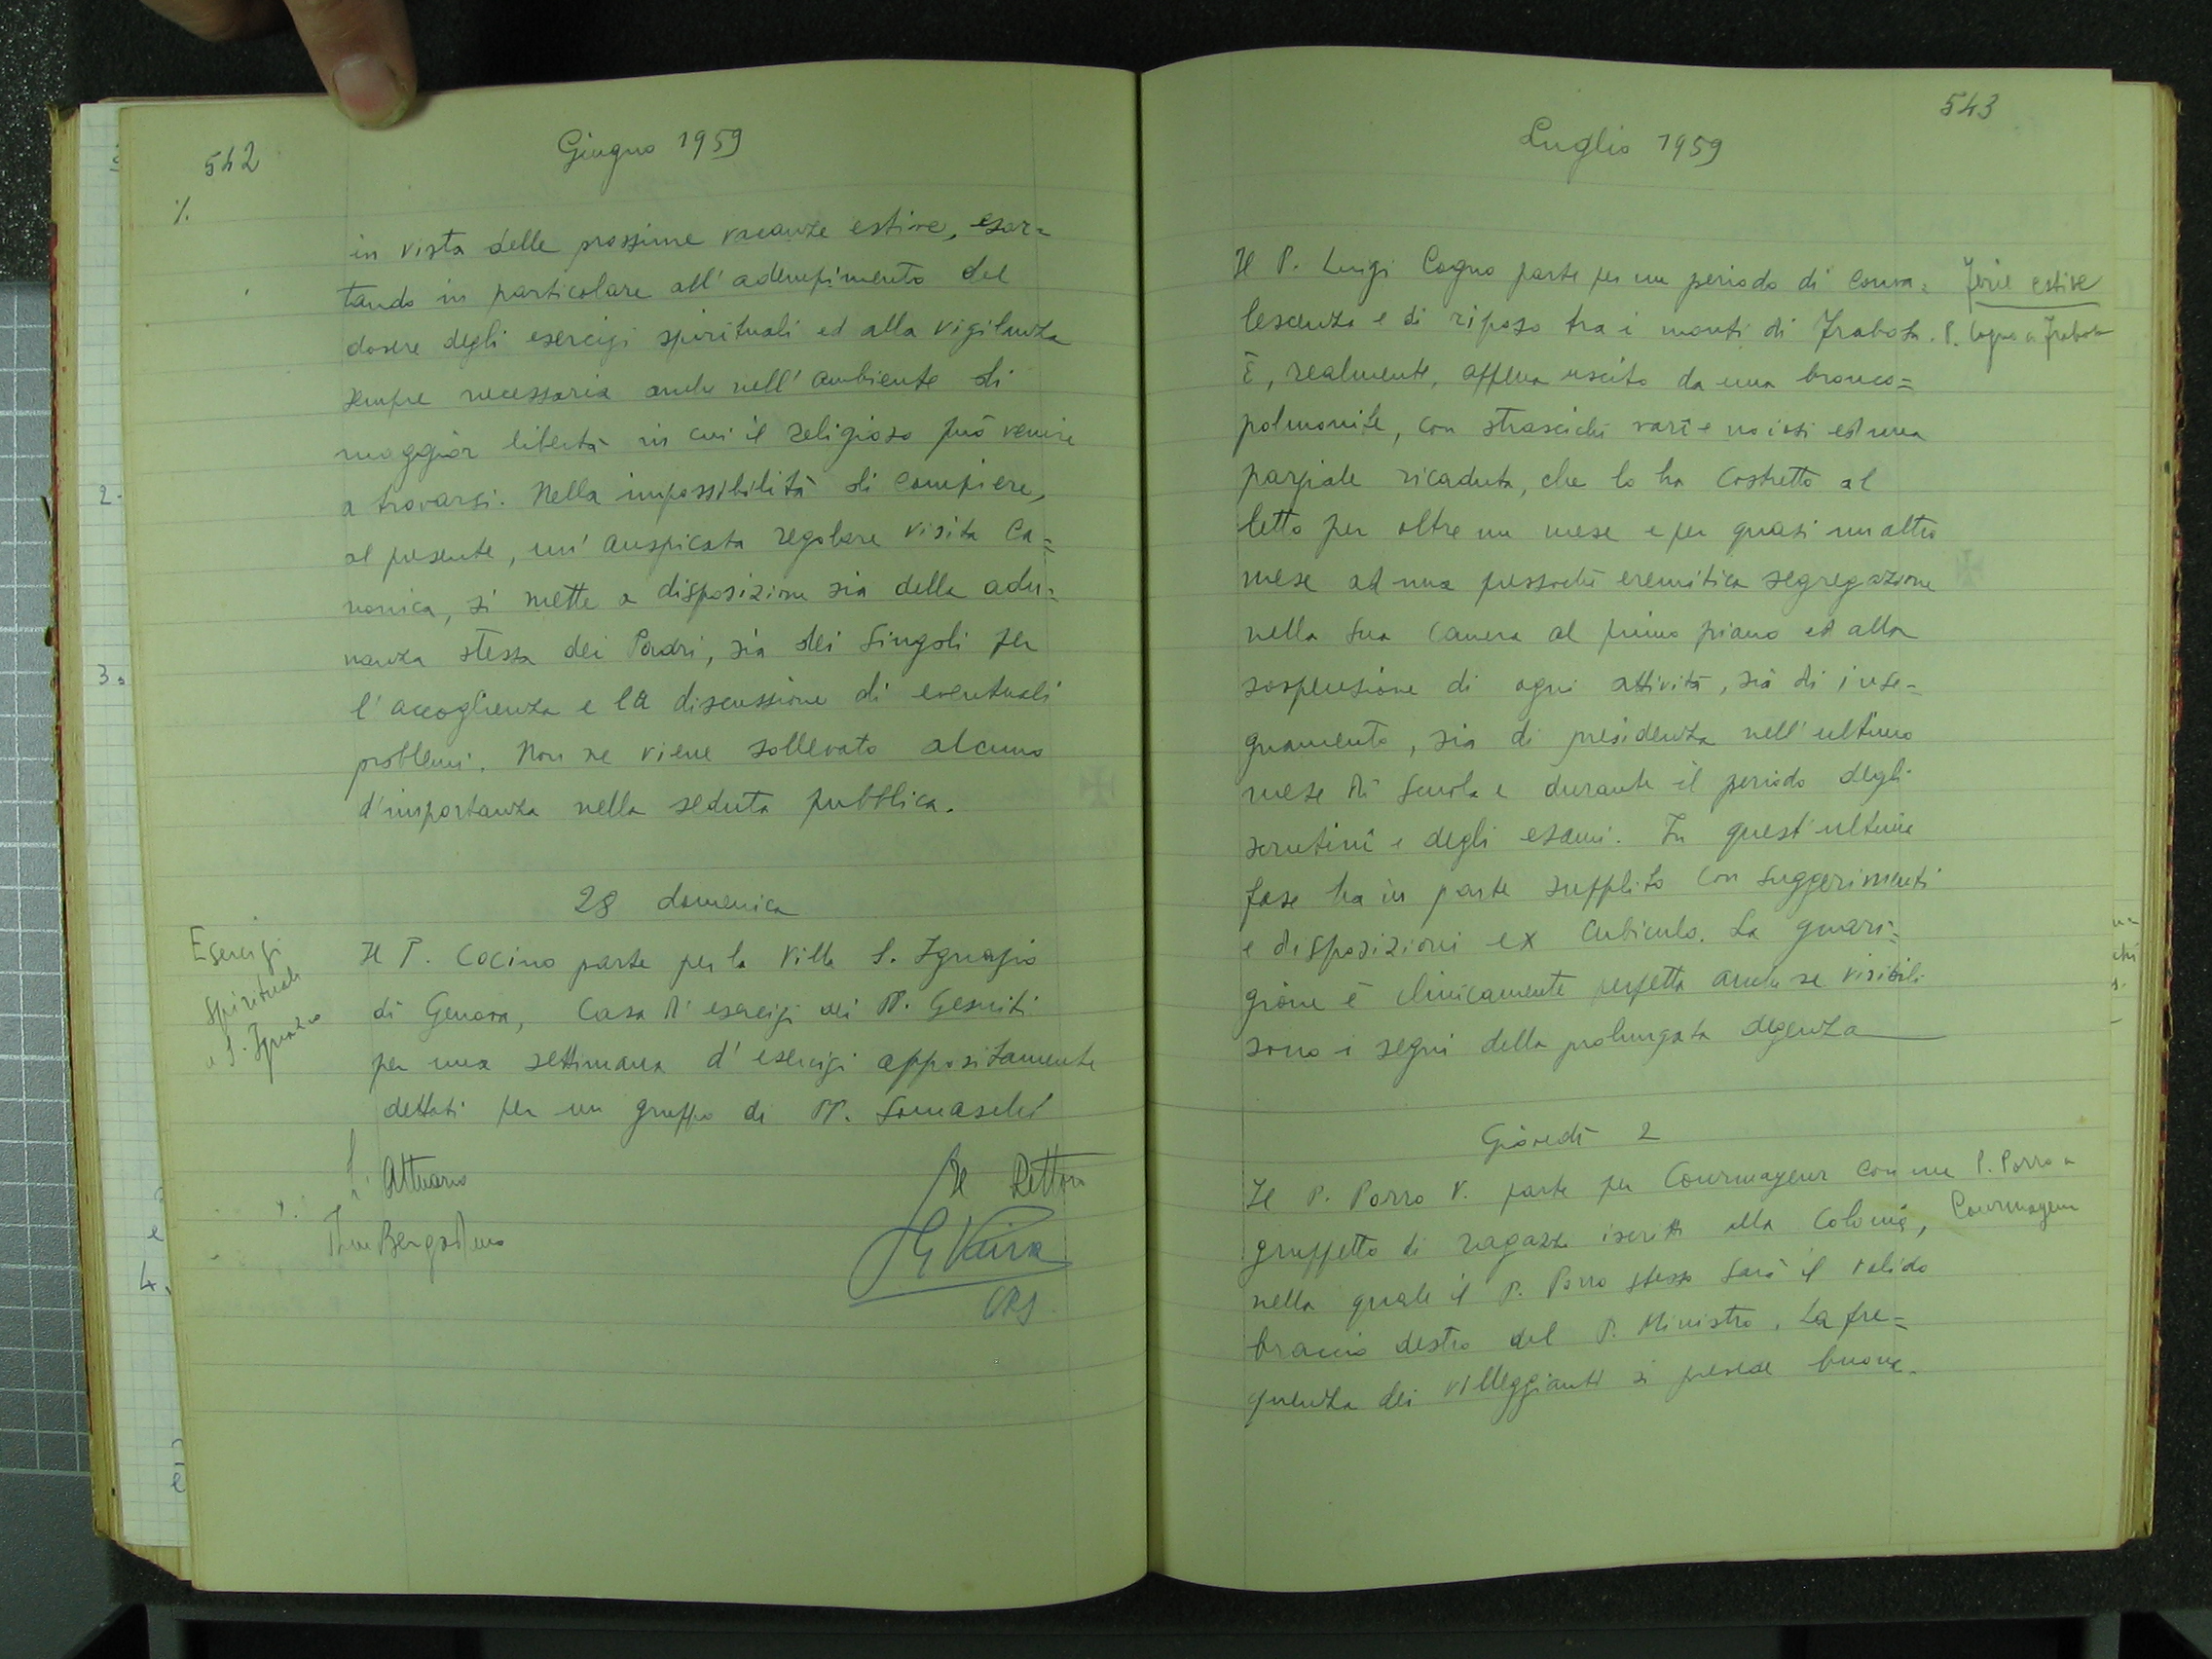 542
Giugno 1959
%
in vista delle prossime vacanze estive, esor=
tando in particolare all'adempimento del
dovere degli esercizi spirituali ed alla vigilanza
sempre necessaria anche nell'ambiente di
maggior libertà in cui il religioso può venire
a trovarsi. Nella impossibilità di compiere,
al presente, un'auspicata regolare visita Ca=
nonica, si mette a disposizione sia della adu=
nanza stessa dei Padri, sia dei singoli per
l'accoglienza e la discussione di eventuali
problemi. Non ne viene sollevato alcuno
d'importanza nella seduta pubblica.
28 domenica
Esercizi
spirituali
a S. Ignazio
Il P. Cocino parte per la Villa S. Ignazio
di Genova, Casa d'esercizi dei PP. Gesuiti
per una settimana d'esercizi appositamente
dettati per un gruppo di PP. Somaschi
Attuario
Il Rettore
Bergadano
CRS.
2.
3.
4.
543
Luglio 1959
Il P. Luigi Cogno parte per un periodo di conva=
lescenza e di riposo tra i monti di Frabosa.
È, realmente, appena uscito da una bronco=
polmonite, con strascichi varî e noiosi ed una
parziale ricaduta, che lo ha costretto al
letto per oltre un mese e per quasi un altro
mese ad una pressochè eremitica segregazione
nella sua camera al primo piano ed alla
sospensione di ogni attività, sia di inse=
gnamento, sia di presidenza nell'ultimo
mese di scuola e durante il periodo degli
scrutinî e degli esami. In quest'ultima
fase ha in parte supplito con suggerimenti
e disposizioni ex cubiculo. La guari=
gione è clinicamente perfetta anche se visibili
sono i segni della prolungata degenza
Ferie estive
P. Cogno a Frabosa
Giovedì 2
Il P. Porro V. parte per Courmayeur con un
gruppetto di ragazzi iscritti alla Colonia,
nella quale il P. Porro stesso sarà il valido
braccio destro del P. Ministro. La fre=
quenza dei villeggianti si prevede buona.
P. Porro a
Courmayeur